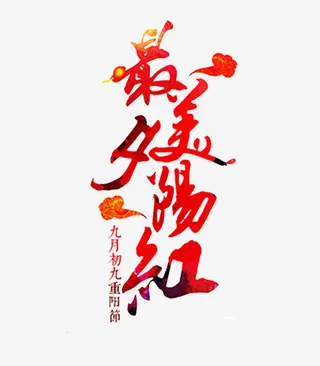 最美
夕陽紅
九月初九重阳節